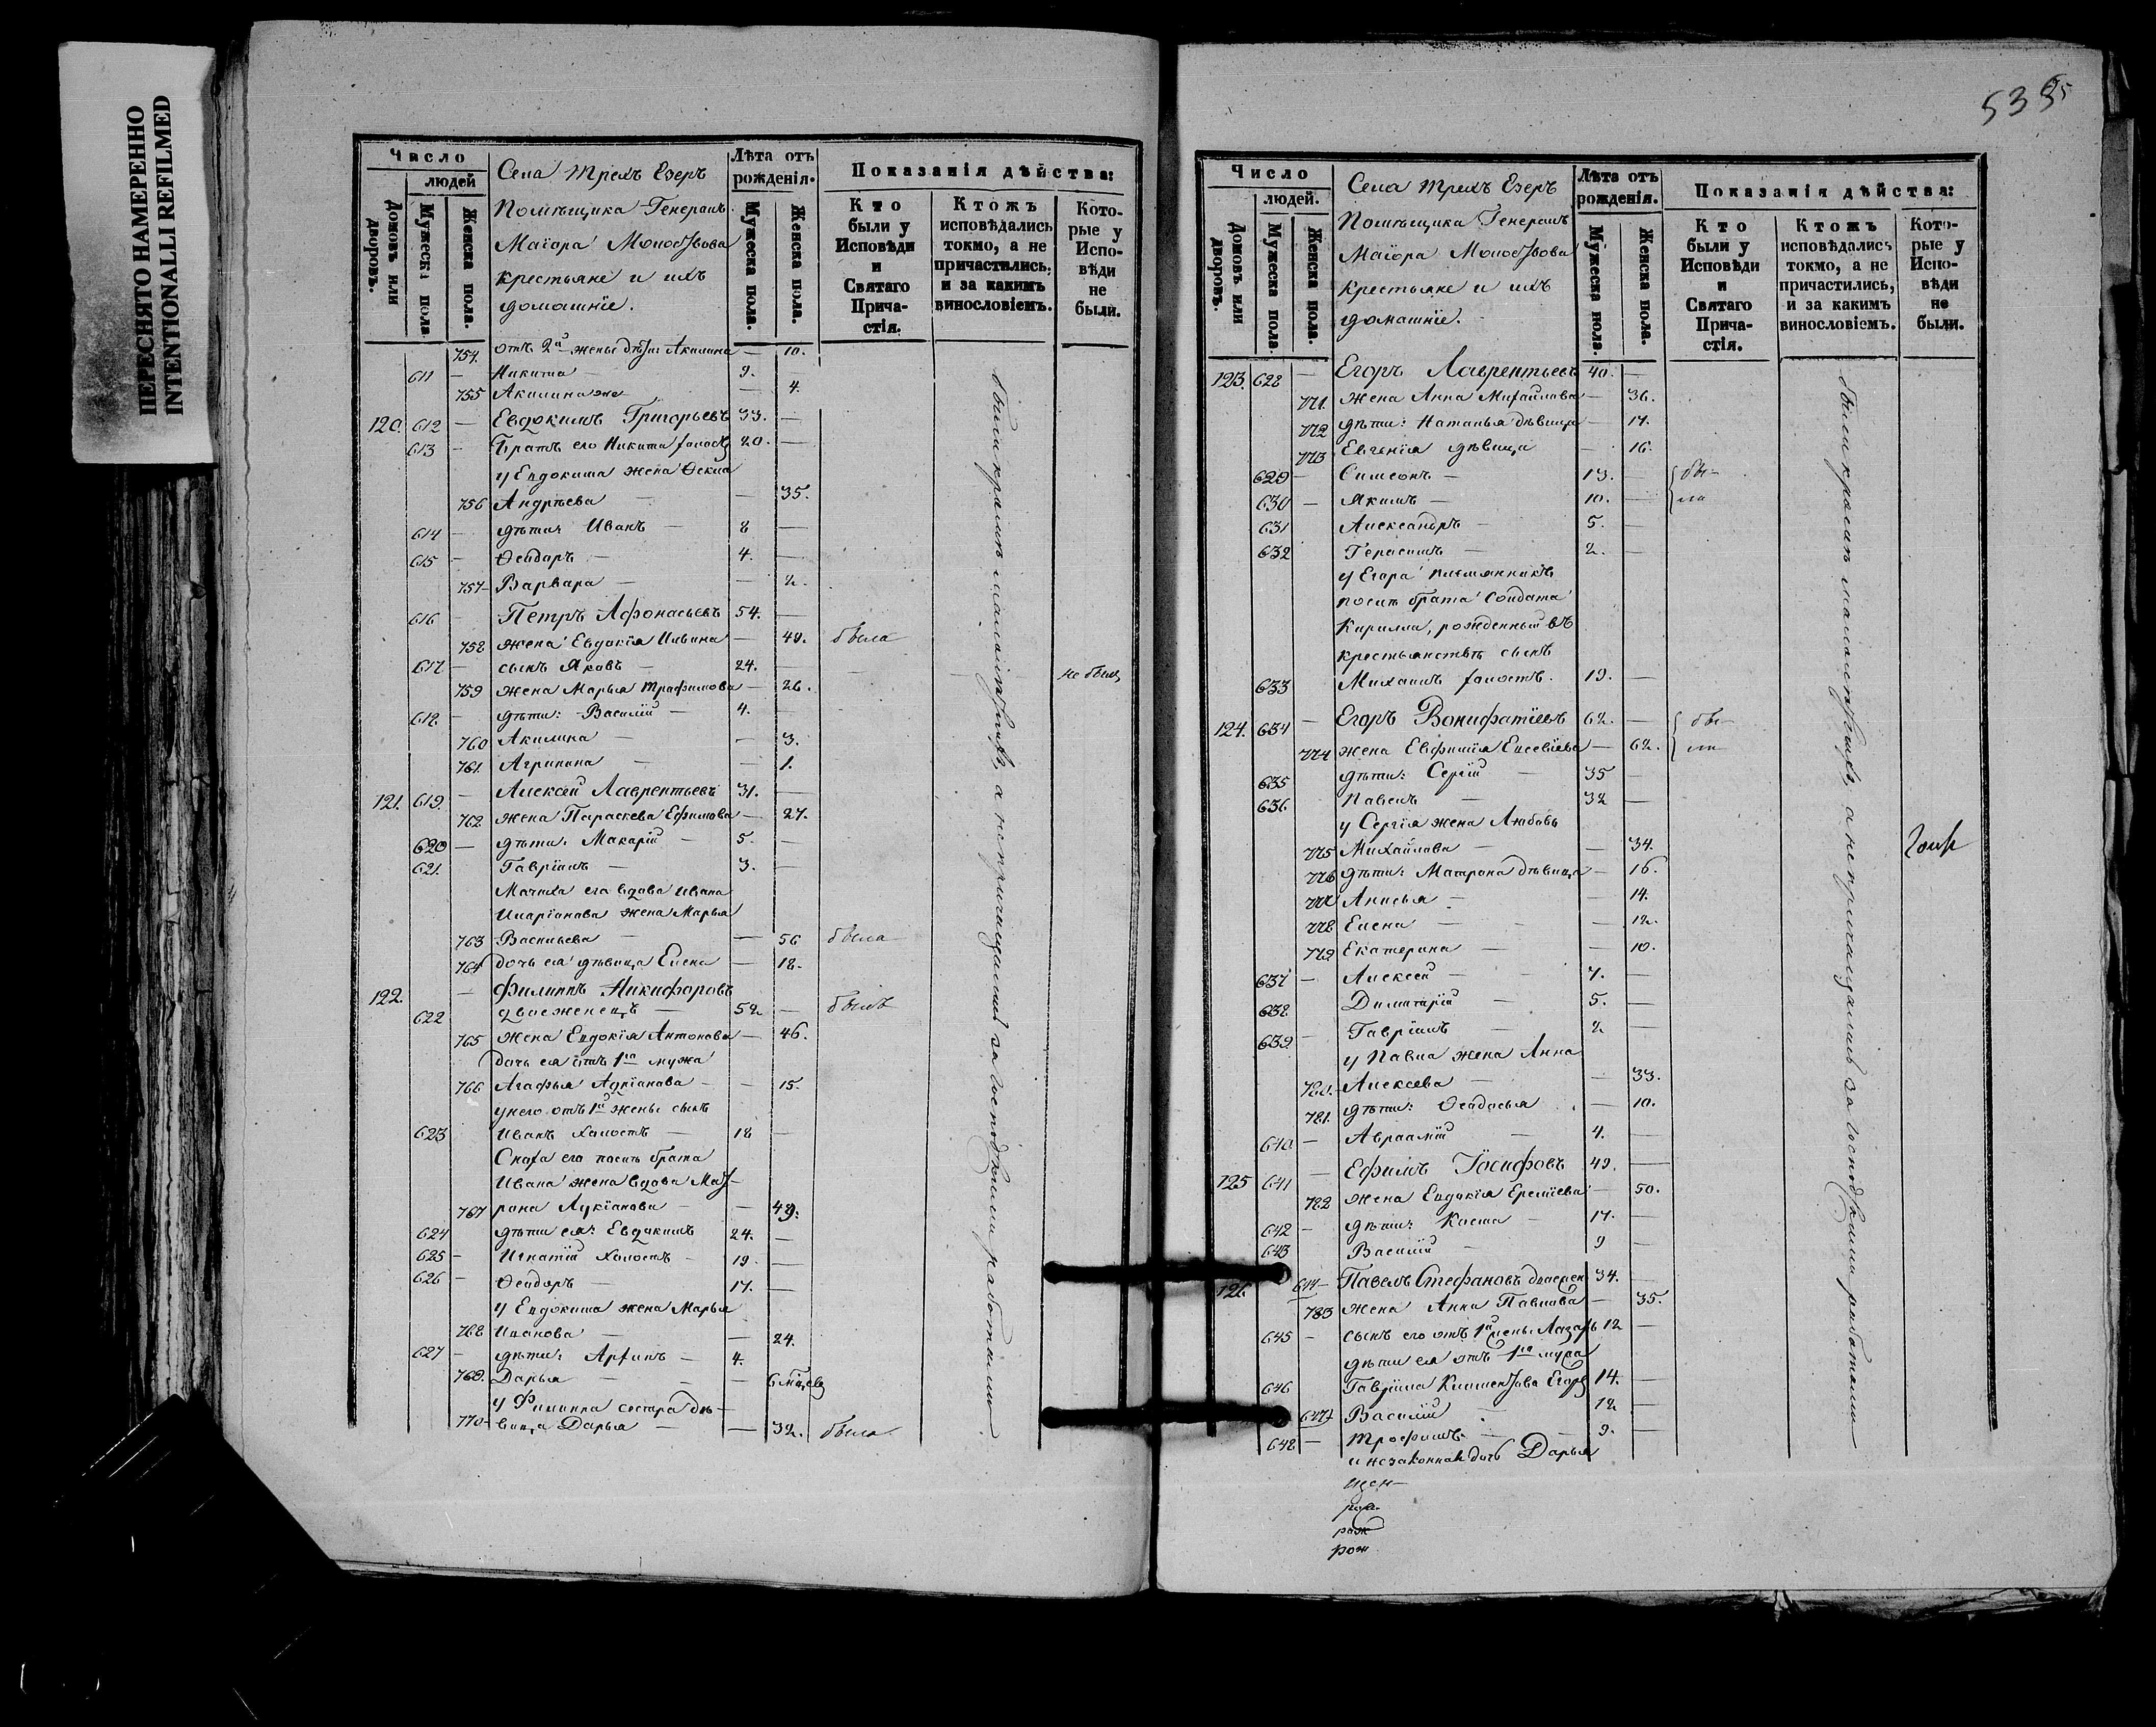 ПЕРЕСНЯТО НАМЕРЕННО
INTENTIONALLI REFILMED
Число
людей
Домовъ или дворовъ.
Мужеска пола
Женска пола.
Села Трехъ Езеръ
Помѣщика Генералъ
Маіора
крестьяне и ихъ
домашніе.
Лѣта отъ рожденія.
Мужеска пола.
Женска пола.
Показанія дѣйства:
Кто были у Исповѣди и Святаго Причастія.
Ктожъ исповѣдались токмо, а не причастились, и за какимъ винословіемъ.
Которые у Исповѣди не были.
754. отъ 2й жены дѣти Акилина — 10.
611 — Никита — 9. —
755 Акилина же — 4.
120. 612 — Евдокимъ Григорьевъ 33. —
613 — Братъ его Никита холостъ 20. —
у Евдокима жена Ѳекла
756 Андрѣева — — 35.
614 — дѣти Иванъ — 8 —
615 — Ѳедоръ — 4. —
757 — Варвара — — 2.
616 — Петръ Афонасьевъ 54. —
758 жена Евдокія — 40. была
617 — сынъ Яковъ — 24. — не былъ
759 жена Марья Трофимова — 26.
618. — дѣти: Василій — 4. —
760 Акилина — — 3.
761. Агрипина — — 1.
121. 619. — Алексѣй Лаврентьевъ 31. —
762 жена Параскева Ефимова — 27.
620 — дѣти: Макарій — 5. —
621. Гавріилъ — 3. —
Мачиха его вдова Ивана
Иларіонова жена Марья
763 Васильева — — 56 была
764 дочь ея дѣвица Елена — 18.
122. — Филиппъ Никифоровъ
622 двоеженецъ — 52 — былъ
765 жена Евдокія Антонова — 46.
дочь ея отъ 1го мужа
766 Агафья Адріанова — — 15.
у него отъ 1й жены сынъ
623 Иванъ холостъ — 18 —
Сноха его послѣ брата
Ивана жена вдова Мат-
767 рона Лукіанова — — 49.
624 дѣти ея: Евдокимъ 24. —
625 — Игнатій холостъ — 19. —
626 — Ѳедоръ — 17. —
у Евдокима жена Марья
768 Иванова — — 24.
627 — дѣти: Архипъ — 4.
769. Дарья — — 6 мѣсяцевъ
у Филиппа сестра дѣ-
770 — вица Дарья — — 32. была
были кромѣ малолѣтнихъ, а не причащались за господскими работами
535
Число
людей.
Домовъ или дворовъ.
Мужеска пола.
Женска пола.
Села Трехъ Езеръ
Помѣщика Генералъ
Маіора
крестьяне и ихъ
домашніе.
Лѣта отъ рожденія.
Мужеска пола.
Женска пола.
Показанія дѣйства:
Кто были у Исповѣди и Святаго Причастія.
Ктожъ исповѣдались токмо, а не причастились, и за какимъ винословіемъ.
Которые у Исповѣди не были.
123. 628 — Егоръ Лаврентьевъ 40. —
771. жена Анна Михайлова — 36.
772 дѣти: Наталья дѣвица — 17.
773 Евгенія дѣвица — 16.
629 — Симеонъ — 13. — бы-
630 — Якимъ — 10. — ли
631 Александръ — 5. —
632 Герасимъ — 2. —
у Егора племянникъ
послѣ брата солдата
Кирилла, рожденный въ
крестьянствѣ сынъ
633 Михаилъ холостъ. 19. —
124. 634 — Егоръ Вонифатіевъ 62. — бы-
774 жена Евфимія Евсевіева — 62. ли
635 дѣти: Сергій — 35 —
636 Павелъ — 32 —
у Сергія жена Любовь
775 Михайлова — — 34.
776 дѣти: Матрона дѣвица — 16.
777 Анисья — — 14.
778 Елена — — 12.
779 Екатерина — — 10.
637 — Алексѣй — 7. —
638 Димитрій — 5. —
639 — Гавріилъ — 2 —
у Павла жена Анна
780. Алексѣева — 33.
781. дѣти: Ѳедосья — 10.
640 — Авраамій — 4. —
125 641 — Ефимъ Іосифовъ 49. —
782 жена Евдокія Еремѣева — 50.
642 — дѣти: Косма — 17. —
643 Василій — 9 —
126. 644 — Павелъ Стефановъ двоежен 34. —
783 жена Анна Павлова — 35.
645 — сынъ его отъ 1й жены Лазарь 12 —
дѣти ея отъ 1го мужа
646 Гаврила Егоръ 14. —
647 Василій — 12 —
648 — Трофимъ — 9. —
и незаконная дочь Дарья
рож
рож
были кромѣ малолѣтнихъ, а не причащались за господскими работами